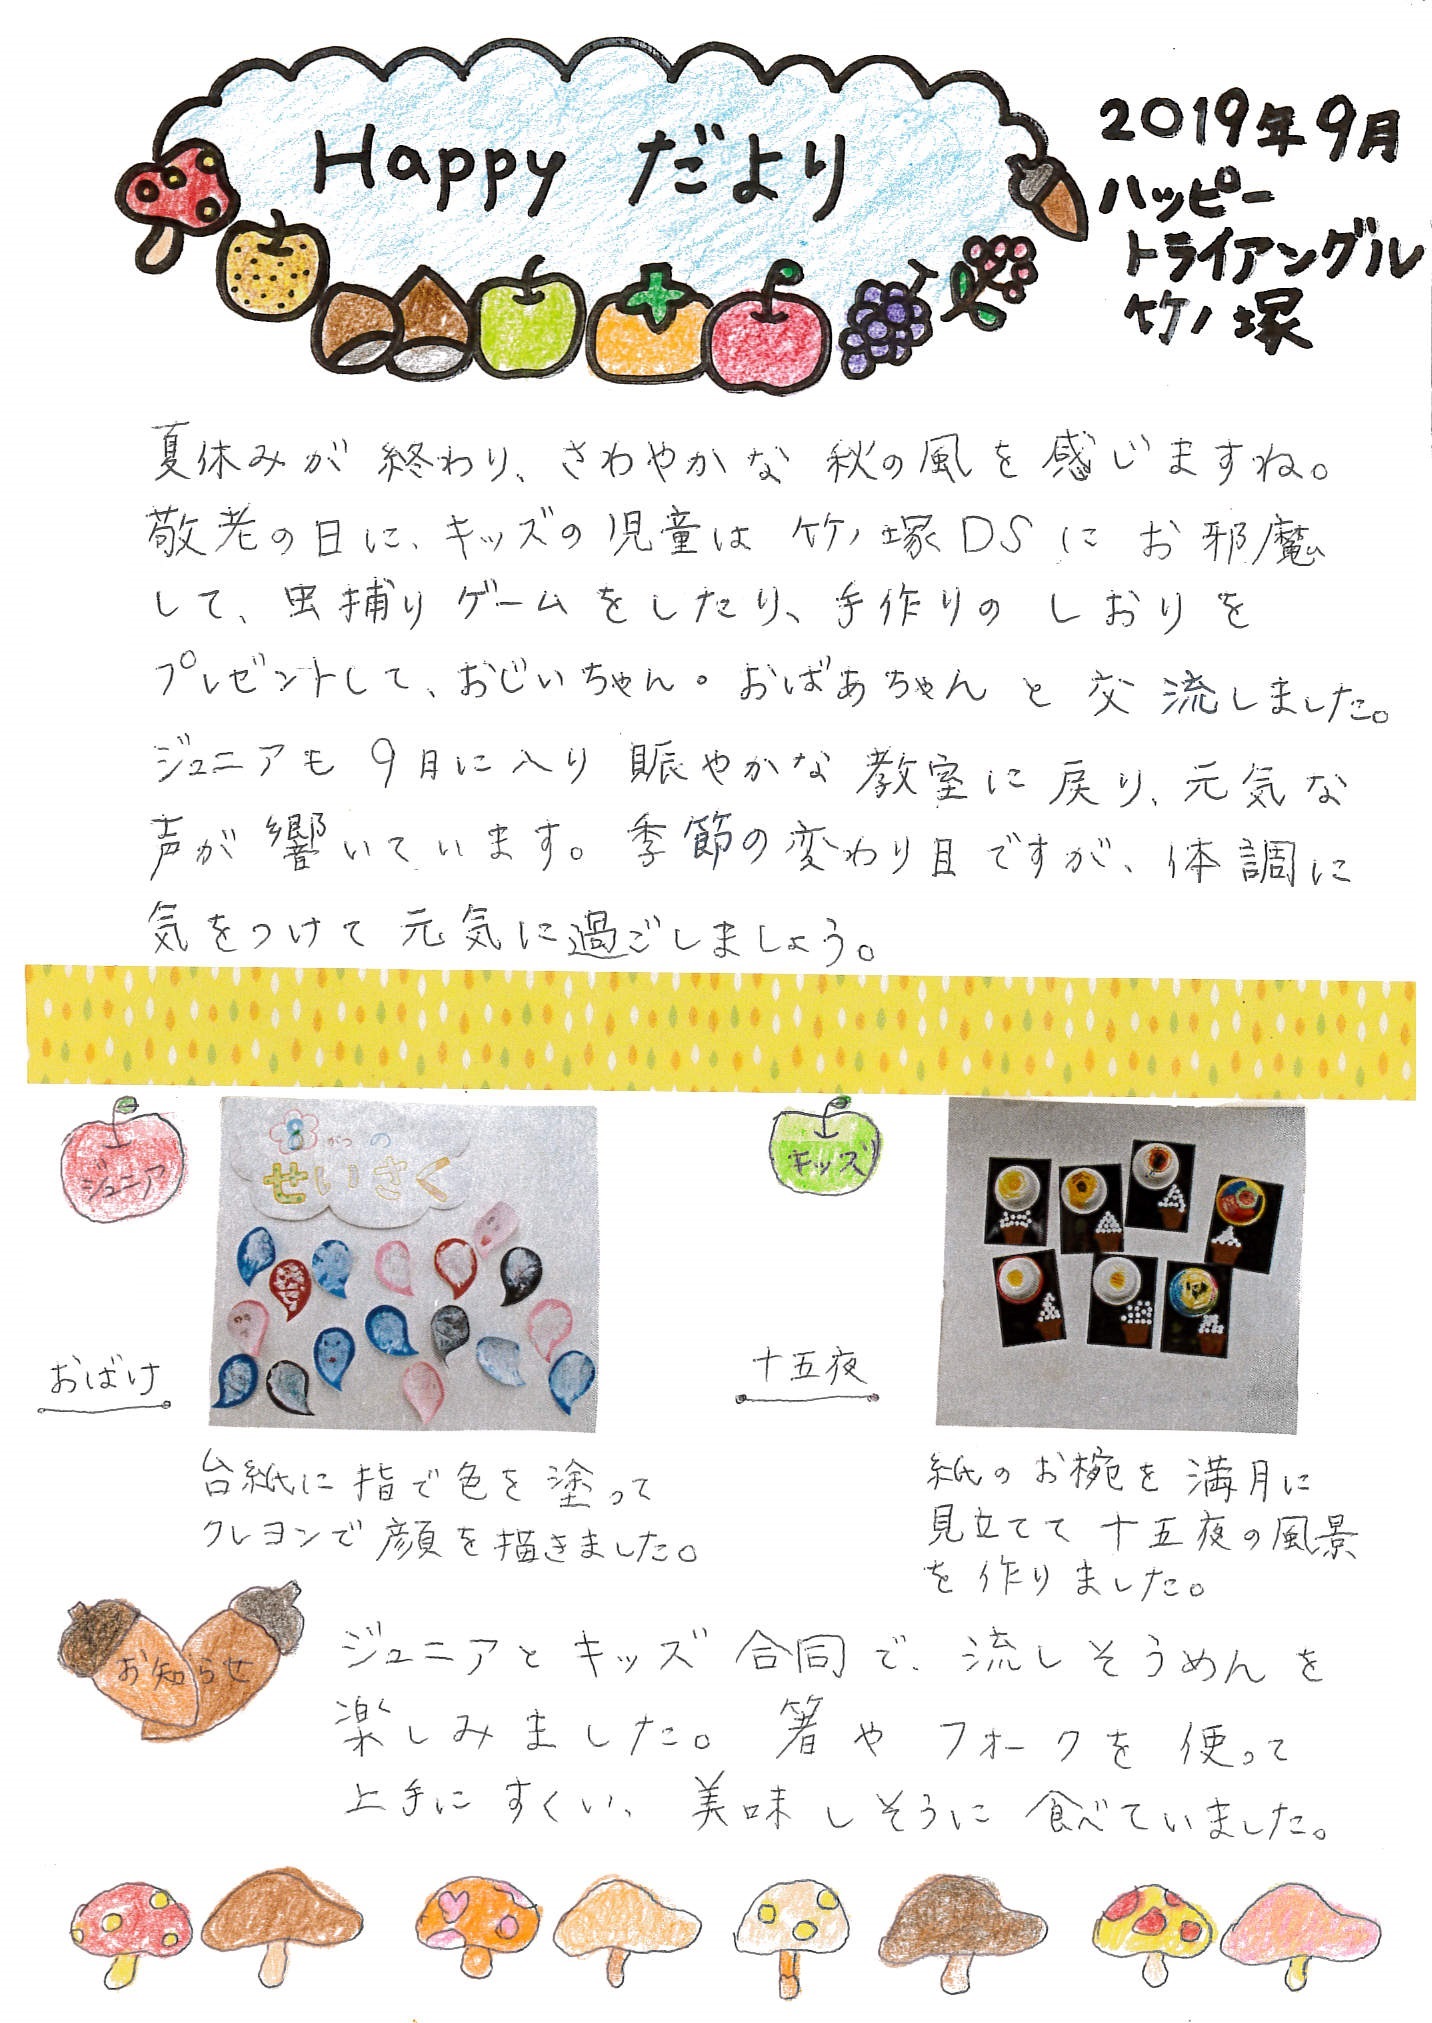 Happy だより
2019年9月
ハッピー
トライアングル
竹ノ塚
夏休みが終わり、さわやかな秋の風を感じますね。
敬老の日に、キッズの児童は竹ノ塚DSにお邪魔
して、虫捕りゲームをしたり、手作りのしおりを
プレゼントして、おじいちゃん・おばあちゃんと交流しました。
ジュニアも9月に入り賑やかな教室に戻り、元気な
声が響いています。季節の変わり目ですが、体調に
気をつけて元気に過ごしましょう。
ジュニア
8がつの
せいさく
おばけ
台紙に指で色を塗って
クレヨンで顔を描きました。
キッズ
十五夜
紙のお椀を満月に
見立てて十五夜の風景
を作りました。
お知らせ
ジュニアとキッズ合同で、流しそうめんを
楽しみました。箸やフォークを使って
上手にすくい、美味しそうに食べていました。